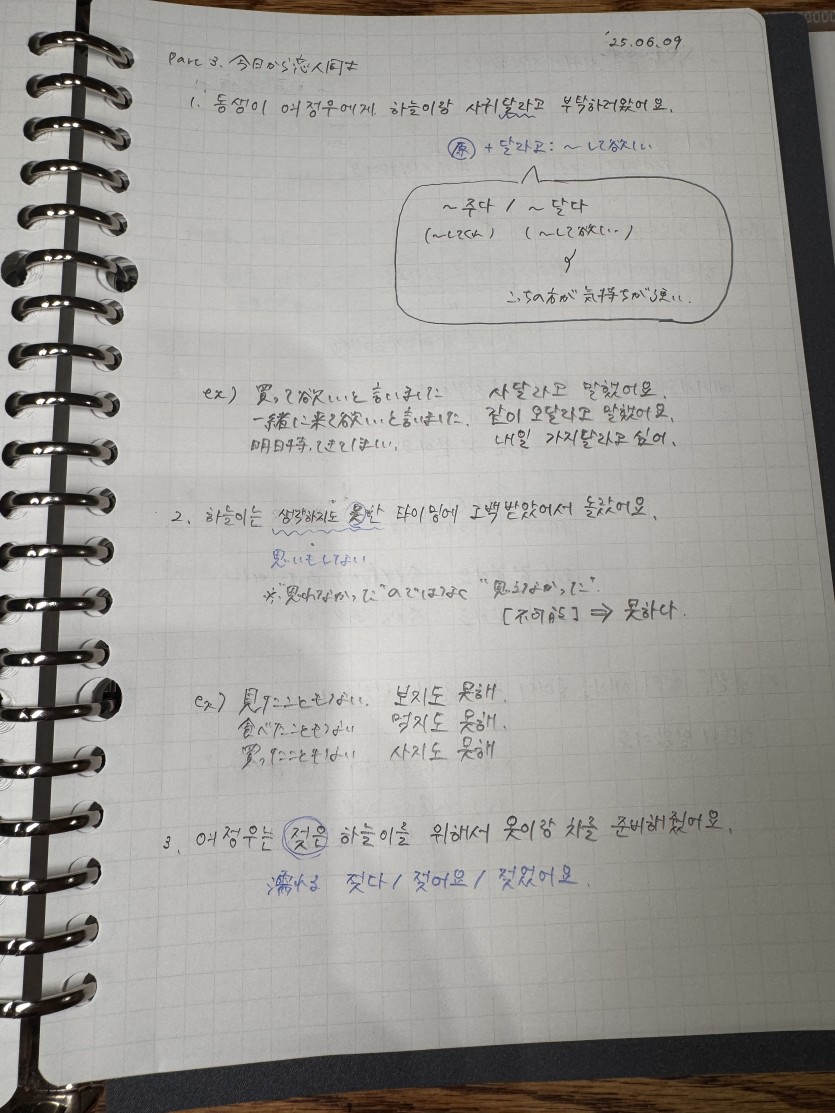 '25.06.09
Part 3. 今日から恋人同士
1. 동생이 여정우에게 하늘이랑 사귀달라고 부탁하러왔어요.
原 + 달라고: ~して欲しい
~주다 / ~달다
(~してくれ) (~して欲しい)
こっちの方が気持ちが強い.
ex) 買って欲しいと言いました 사달라고 말했어요.
一緒に来て欲しいと言いました. 같이 오달라고 말했어요.
明日持ってきてほしい. 내일 가지달라고 싶어.
2. 하늘이는 생각하지도 못한 타이밍에 고백받았어서 놀랐어요.
思いもしない
※"思わなかった"のではなく "思えなかった".
[不可能] ⇒ 못하다.
ex) 見たこともない. 보지도 못해.
食べたこともない 먹지도 못해.
買ったこともない 사지도 못해
3. 여정우는 젖은 하늘이을 위해서 옷이랑 차를 준비해줬어요.
濡れる 젖다 / 젖어요 / 젖었어요.